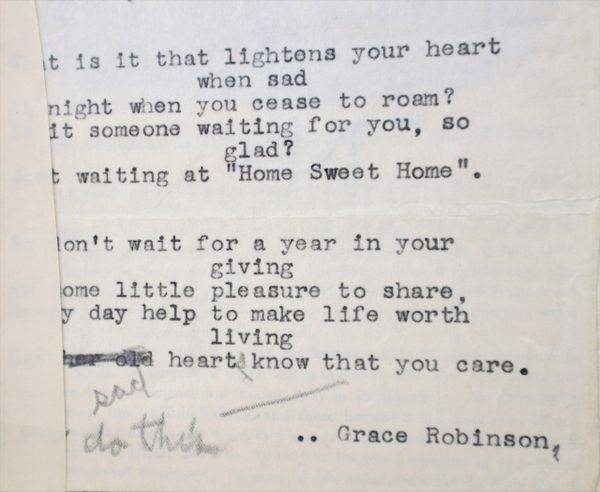 t is it that lightens your heart
when sad
night when you cease to roam?
it someone waiting for you, so
glad?
t waiting at "Home Sweet Home".
don't wait for a year in your
giving
ome little pleasure to share,
y day help to make life worth
living
her old heart know that you care.
sad
do this
.. Grace Robinson,